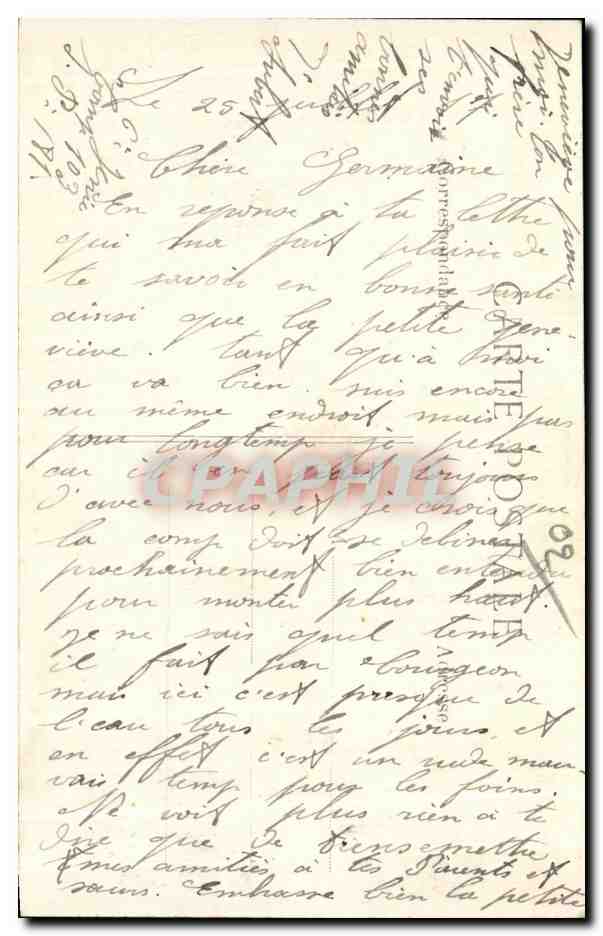 Le 25 Juillet
Chère Germaine
En reponse à ta lettre
qui ma fait plaisir de
te savoir en bonne santé
ainsi que la petite gene-
viève. tant qu'à moi
ca va bien. suis encore
au même endroit mais pas
pour longtemp je pense
car il y en part toujours
d'avec nous, et je crois que
la comp doit se debiner
prochainement bien entendu
pour monter plus haut.
Je ne sais quel temp
il fait par bourgeon
mais ici c'est presque de
l'eau tous les jours, et
en effet c'est un rude mau-
vais temp pour les foins.
Ne voit plus rien à te
dire que de transmettre
mes amitiés à tes Parents et
sœurs. Embrasse bien la petite
Geneviève pour
moi. Ton
qui t'envoie
ses
bonnes
amitiés
103
S. P. 181
CARTE POSTALE
Correspondance
Adresse
02
CPAPHIL